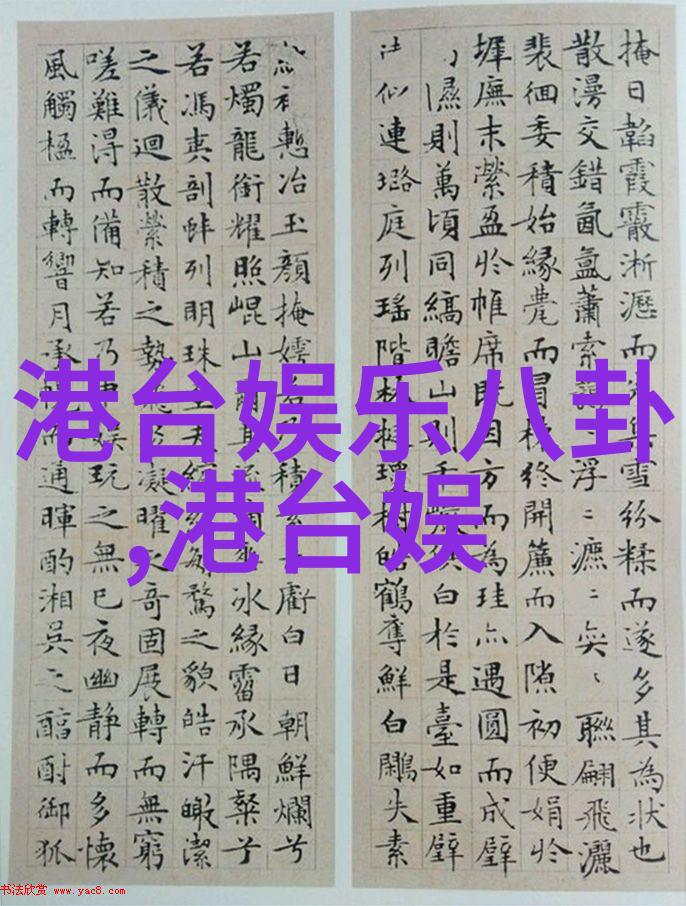 港台娱乐八卦
,港台娱
掩日韜霞霰淅瀝而集雪紛糅而遂多其為狀也
散漫交錯氤氳蕭索浮〻瀌〻奕〻聯翩飛灑
裴徊委積始緣甍而冒棟終開簾而入隙初便娟於
墀廡末縈盈於帷席既因方而為珪亦遇圓而成璧
隰則萬頃同縞瞻山則千白於是臺如重璧
似連璐庭列瑶階林挺瓊樹皓鶴奪鮮白鷳失素
慙冶玉顏掩嫮若乃積虧白日朝鮮爛兮
若燭龍銜耀照崐山爾其流滴垂冰緣霤承隅粲兮
若馮夷剖蚌列明珠至夫繽紛騖之貌皓汗曒潔
之儀迴散縈積之勢飛凝曜之奇固展轉而無窮
嗟難得而備知若乃申娱玩之無已夜幽静而多懷
風觸楹而轉響月承幌而通暉酌湘吳之醇酎御狐
书法欣赏 www.yac8.com